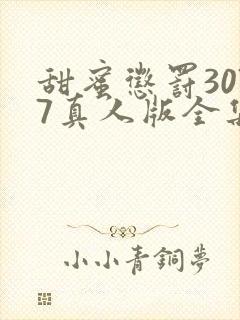 甜蜜懲罰30
7真人版全集
小小青銅夢